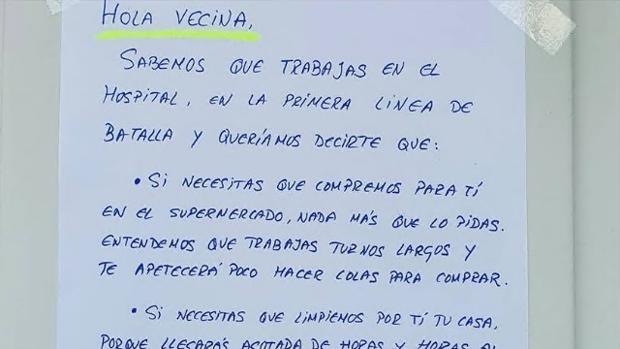 HOLA VECINA,
SABEMOS QUE TRABAJAS EN EL
HOSPITAL, EN LA PRIMERA LINEA DE
BATALLA Y QUERÍAMOS DECIRTE QUE:
• SI NECESITAS QUE COMPREMOS PARA TÍ
EN EL SUPERMERCADO, NADA MÁS QUE LO PIDAS.
ENTENDEMOS QUE TRABAJAS TURNOS LARGOS Y
TE APETECERÁ POCO HACER COLAS PARA COMPRAR.
• SI NECESITAS QUE LIMPIEMOS POR TÍ TU CASA,
PORQUE LLEGARÁS AGOTADA DE HORAS Y HORAS AL